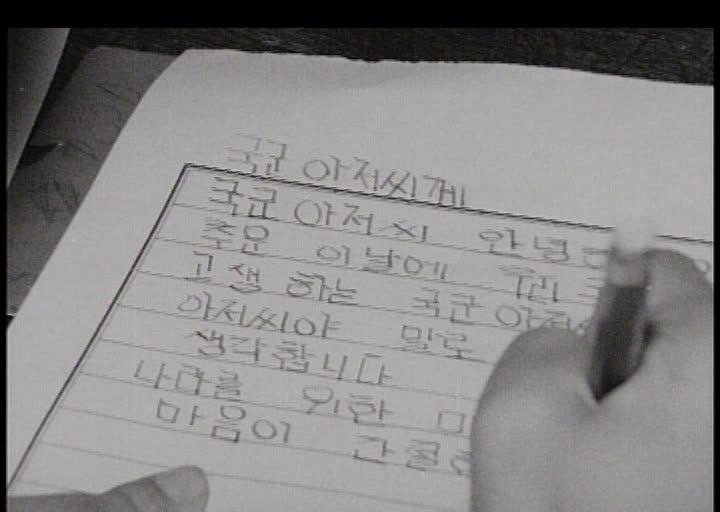 국군 아저씨께
국군 아저씨 안녕
추운 이날에
고생 하는 국군 아저씨
아저씨야 말로
생각합니다
나라를 위한
마음이 간절